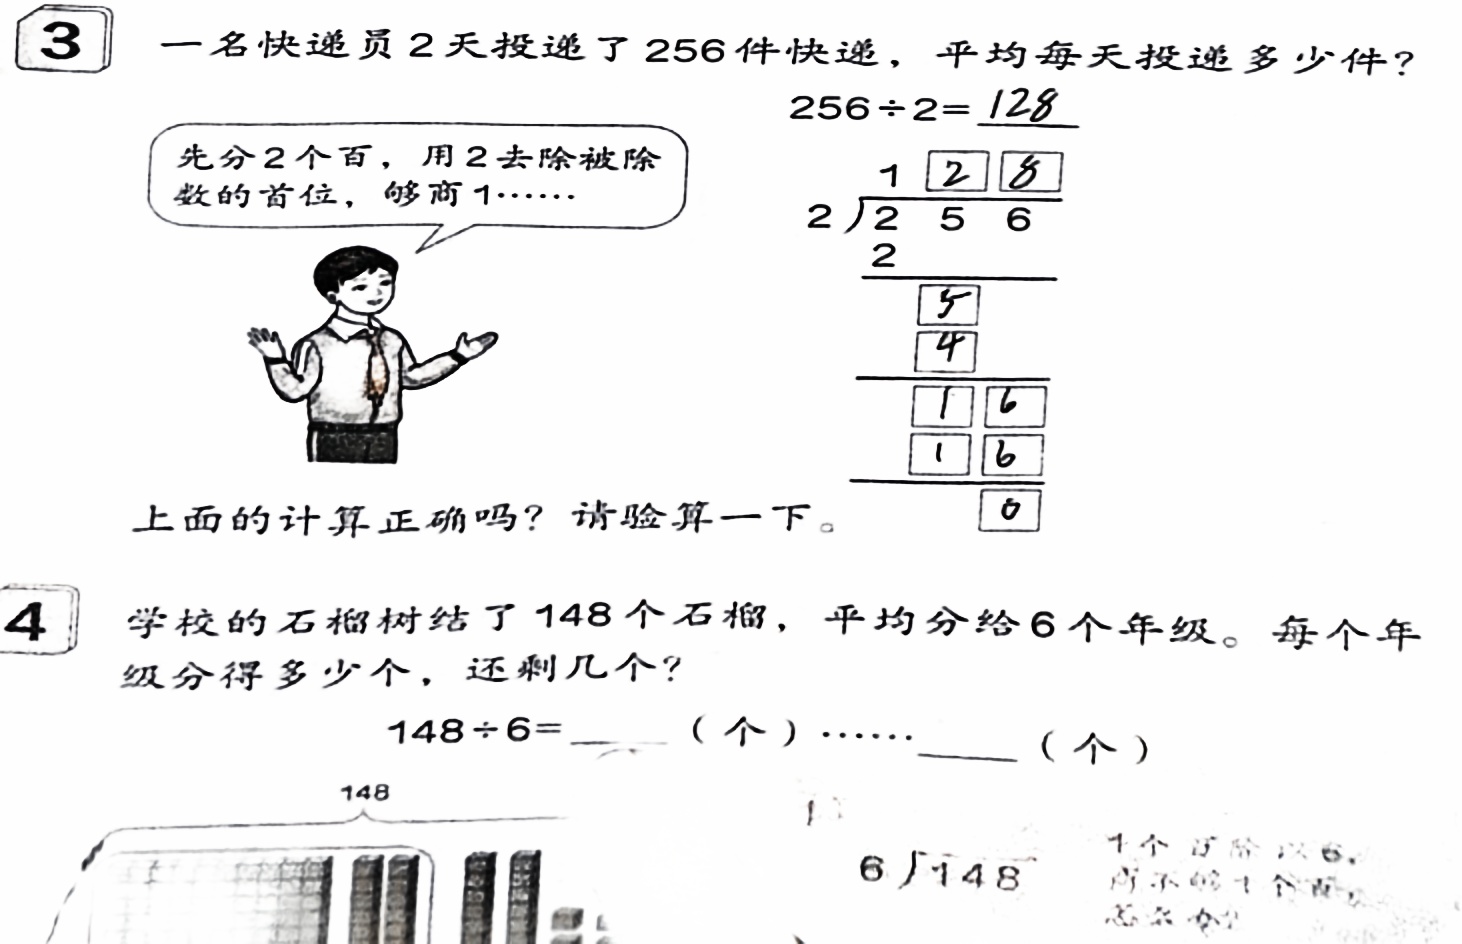 3 一名快递员2天投递了256件快递，平均每天投递多少件？
256÷2=128
先分2个百，用2去除被除
数的首位，够商1……
1 2 8
2)2 5 6
2
5
4
1 6
1 6
0
上面的计算正确吗？请验算一下。
4 学校的石榴树结了148个石榴，平均分给6个年级。每个年
级分得多少个，还剩几个？
148÷6=___（个）……___（个）
148
6)148